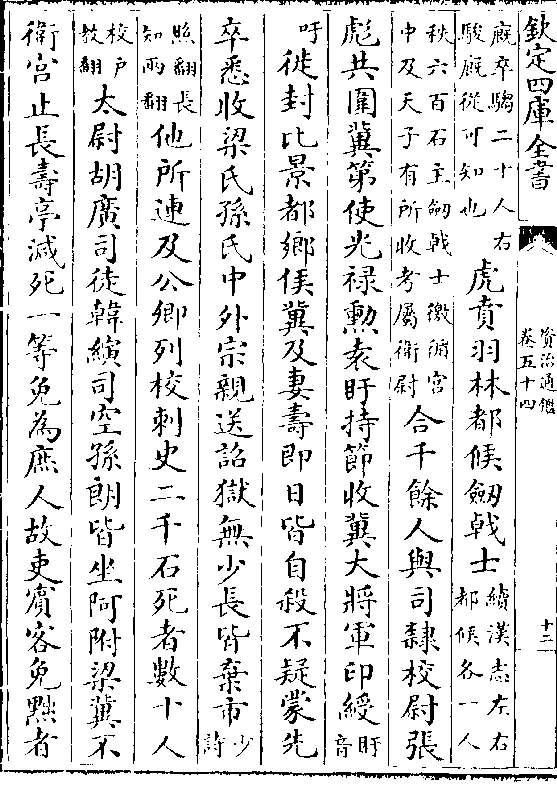 欽定四庫全書
資治通鑑
卷五十四
十三
廐卒騶二十人右
駿廐從可知也
虎賁羽林都候劒戟士
續漢志左右
都候各一人
秩六百石主劒戟士徼循宮
中及天子有所收考屬衛尉
合千餘人與司隸校尉張
彪共圍冀第使光禄勲袁盱持節收冀大將軍印綬
盱
音
吁
徙封比景都鄉侯冀及妻壽即日皆自殺不疑蒙先
卒悉收梁氏孫氏中外宗親送詔獄無少長皆棄市
少
詩
照翻長
知兩翻
他所連及公卿列校刺史二千石死者數十人
校户
教翻
太尉胡廣司徒韓縯司空孫朗皆坐阿附梁冀不
衛宮止長壽亭減死一等免為庶人故吏賓客免黜者